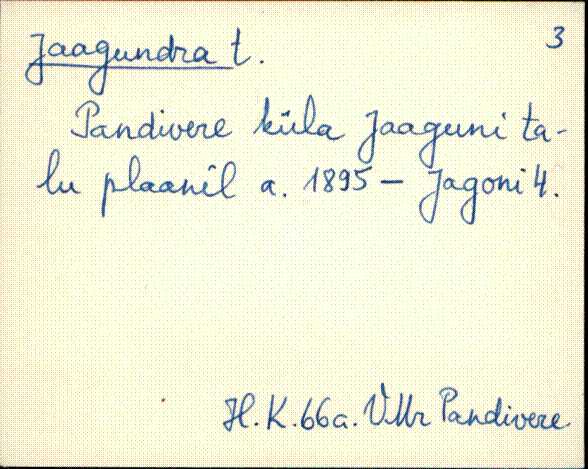 Jaagundra t. 3
Pandivere küla Jaaguni ta-
lu plaanil a. 1895 – Jagoni 4.
H.K.66a. VMr Pandivere